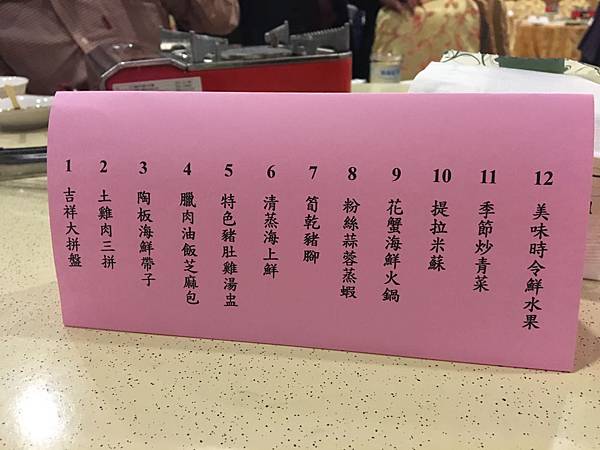 1 吉祥大拼盤
2 土雞肉三拼
3 陶板海鮮帶子
4 臘肉油飯芝麻包
5 特色豬肚雞湯盅
6 清蒸海上鮮
7 筍乾豬腳
8 粉絲蒜蓉蒸蝦
9 花蟹海鮮火鍋
10 提拉米蘇
11 季節炒青菜
12 美味時令鮮水果